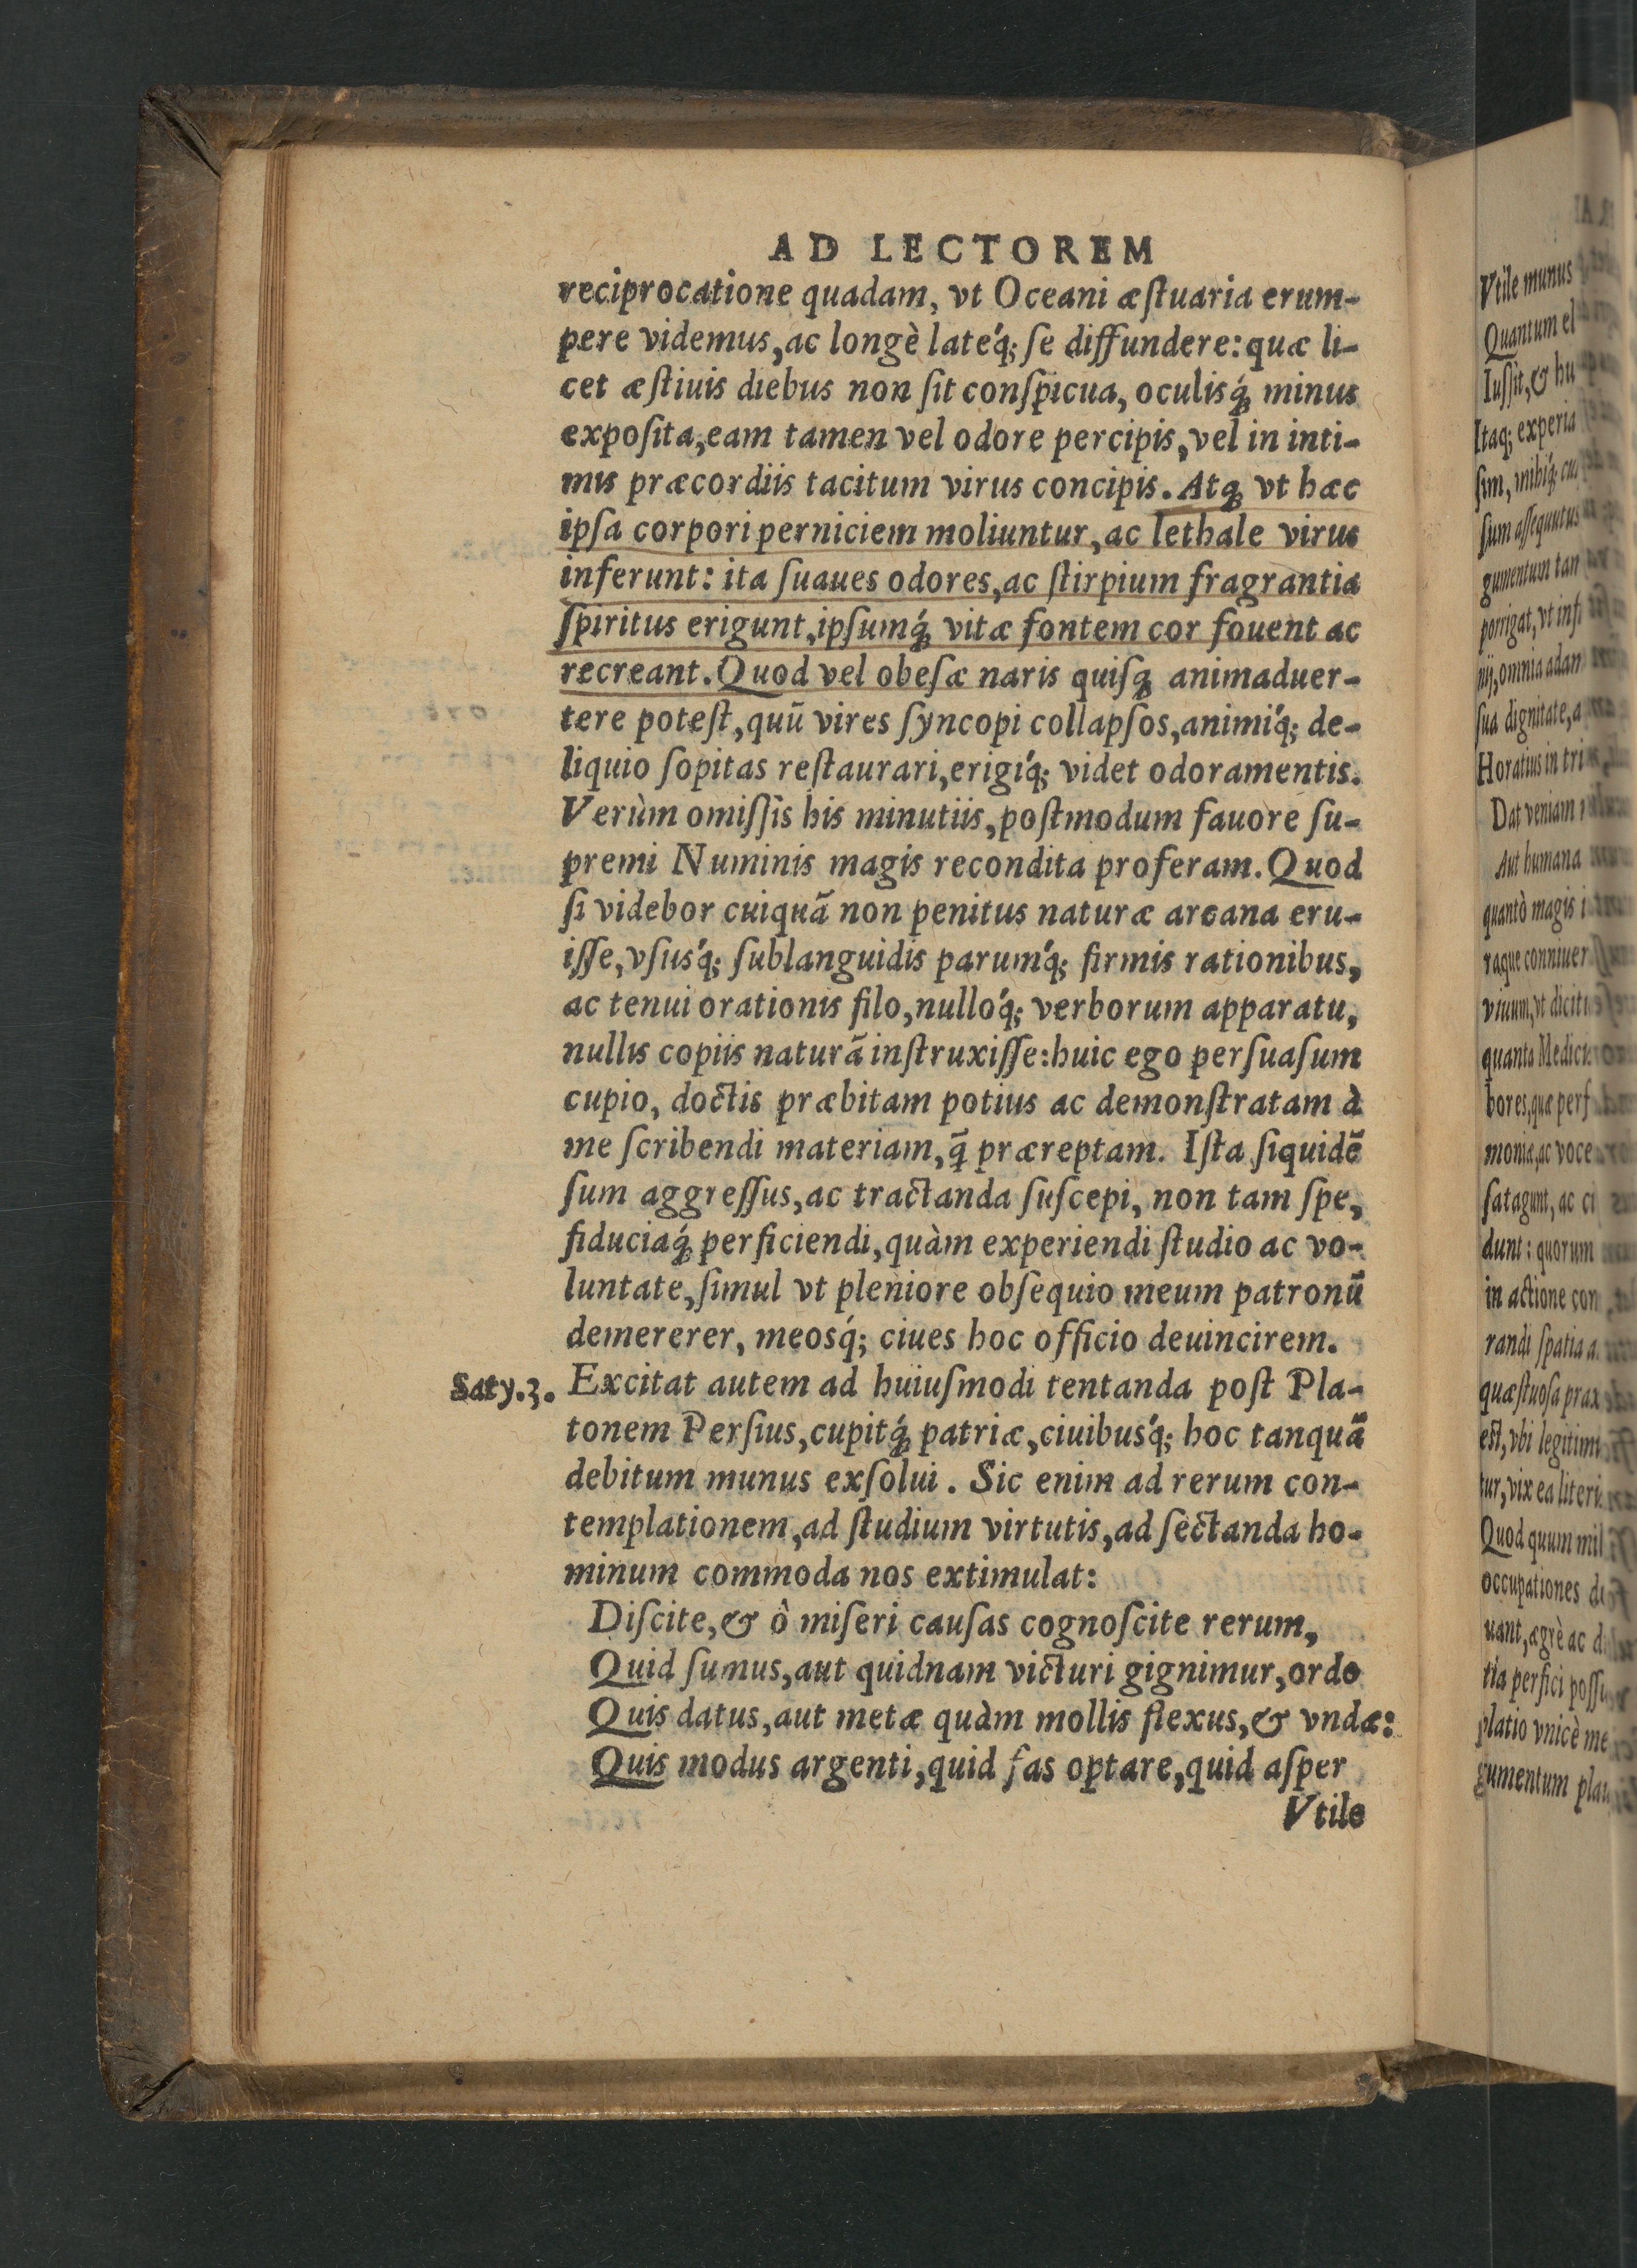 AD LECTOREM
reciprocatione quadam, vt Oceani æſtuaria erum-
pere videmus, ac longè lateq́; ſe diffundere: quæ li-
cet æſtiuis diebus non ſit conſpicua, oculisq́; minus
expoſita, eam tamen vel odore percipis, vel in inti-
mis præcordiis tacitum virus concipis. Atq; vt hæc
ipſa corpori perniciem moliuntur, ac lethale virus
inferunt: ita ſuaues odores, ac ſtirpium fragrantia
ſpiritus erigunt, ipſumq́; vitæ fontem cor fouent ac
recreant. Quod vel obeſæ naris quiſq; animaduer-
tere poteſt, quū vires ſyncopi collapſos, animiq́; de-
liquio ſopitas reſtaurari, erigiq́; videt odoramentis.
Verùm omiſſis his minutiis, poſtmodum fauore ſu-
premi Numinis magis recondita proferam. Quod
ſi videbor cuiquā non penitus naturæ arcana eru-
iſſe, vſusq́; ſublanguidis parumq́; firmis rationibus,
ac tenui orationis filo, nulloq́; verborum apparatu,
nullis copiis naturā inſtruxiſſe: huic ego perſuaſum
cupio, doctis præbitam potius ac demonſtratam à
me ſcribendi materiam, q̄ præreptam. Iſta ſiquidē
ſum aggreſſus, ac tractanda ſuſcepi, non tam ſpe,
fiduciaq́; perficiendi, quàm experiendi ſtudio ac vo-
luntate, ſimul vt pleniore obſequio meum patronū
demererer, meosq́; ciues hoc officio deuincirem.
Saty.3. Excitat autem ad huiuſmodi tentanda poſt Pla-
tonem Perſius, cupitq́; patriæ, ciuibusq́; hoc tanquā
debitum munus exſolui. Sic enim ad rerum con-
templationem, ad ſtudium virtutis, ad ſectanda ho-
minum commoda nos extimulat:
Diſcite, & ô miſeri cauſas cognoſcite rerum,
Quid ſumus, aut quidnam victuri gignimur, ordo
Quis datus, aut metæ quàm mollis flexus, & vndæ:
Quis modus argenti, quid fas optare, quid aſper
Vtile
Vtile munus
Quantum el
Iuſſit, & hu
Itaq; experia
ſim, mihiq́; cu
ſum aſſequutus
gumentum tan
porrigat, vt inſ
nij, omnia adan
ſua dignitate, a
Horatius in tri
Dat veniam
Aut humana
quantò magis i
raque conniuer
viuum, vt dicitu
quanta Medici
bores, quæ perf
monia, ac voce
ſatagunt, ac ci
dunt: quorum
in actione con
randi ſpatia a
quæſtuoſa prax
eſt, vbi legitimi
tur, vix ea literi
Quod quum mil
occupationes di
uant, ægrè ac d
tia perfici poſſu
platio vnicè me
gumentum plau